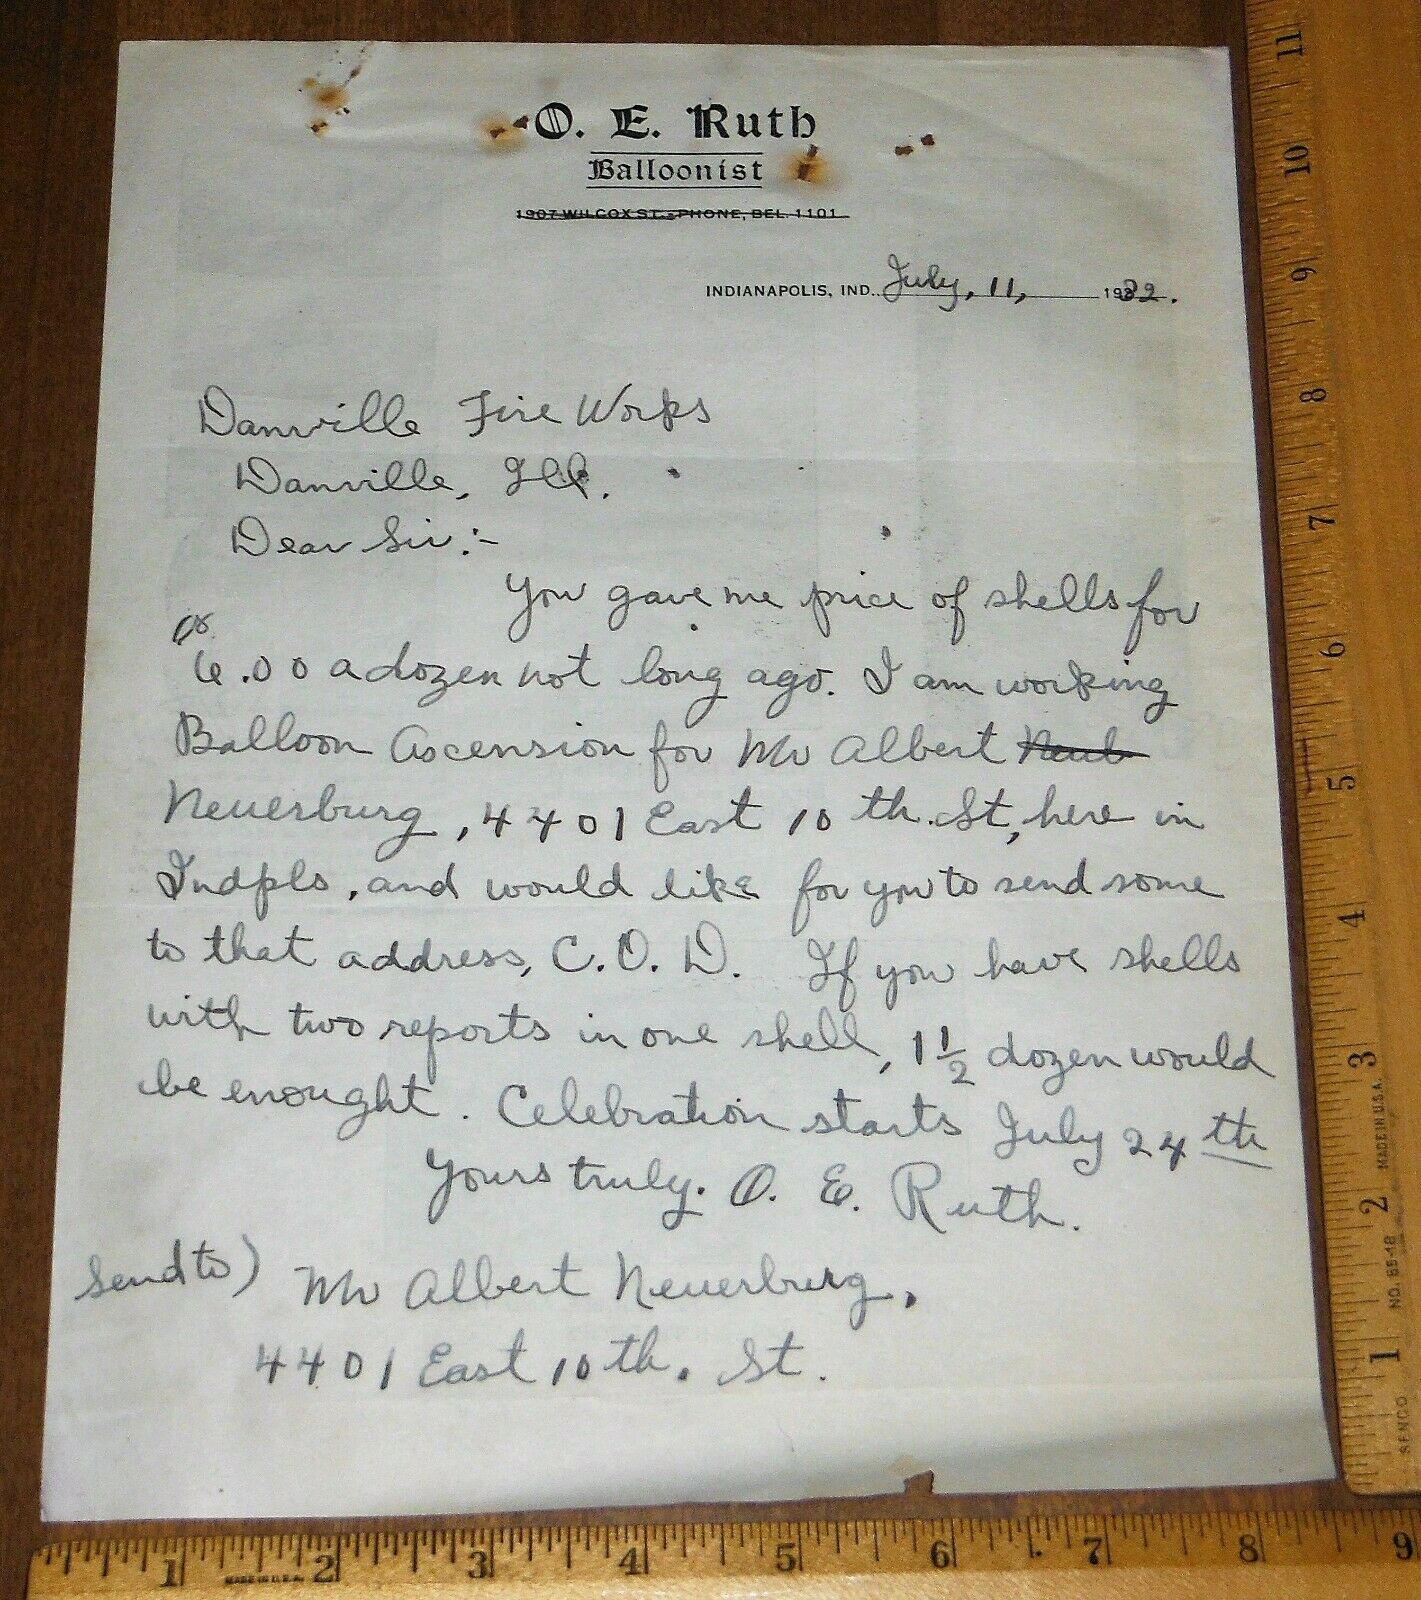 O. E. Ruth
Balloonist
1907 WILCOX ST. - PHONE, BEL. 1101
INDIANAPOLIS, IND. July, 11, 1932.
Danville Fire Works
Danville, Ill.
Dear Sir:-
You gave me price of shells for
6.00 a dozen not long ago. I am working
Balloon Ascension for Mr Albert Neub
Neuerburg, 4401 East 10th. St, here in
Indpls, and would like for you to send some
to that address, C.O.D. If you have shells
with two reports in one shell, 1 1/2 dozen would
be enought. Celebration starts July 24th
Yours truly. O. E. Ruth.
Send to) Mr Albert Neuerburg,
4401 East 10th. St.
11
10
9
8
7
6
5
4
3
2
1
MADE IN U.S.A.
NO. 65-48
SENCO
1 2 3 4 5 6 7 8 9
MADE IN U.S.A.